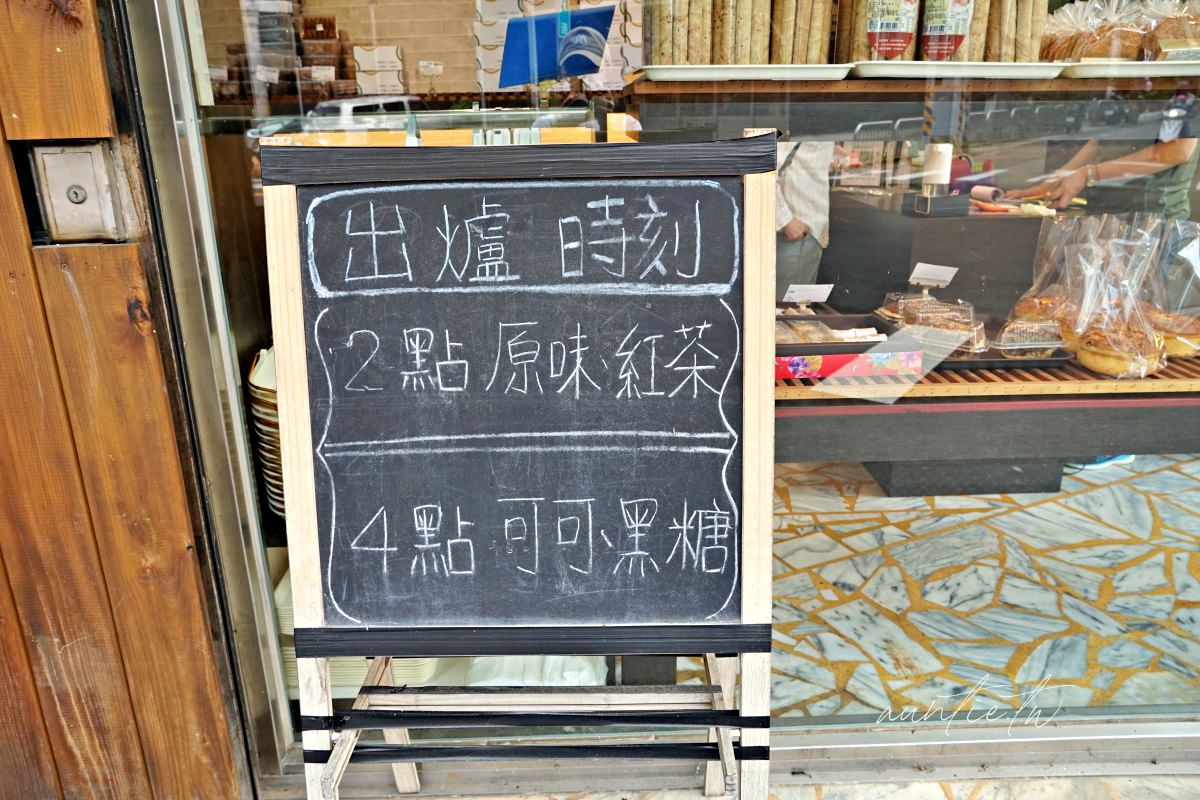 出爐 時刻
2點 原味、紅茶
4點 可可、黑糖
auntie.tw